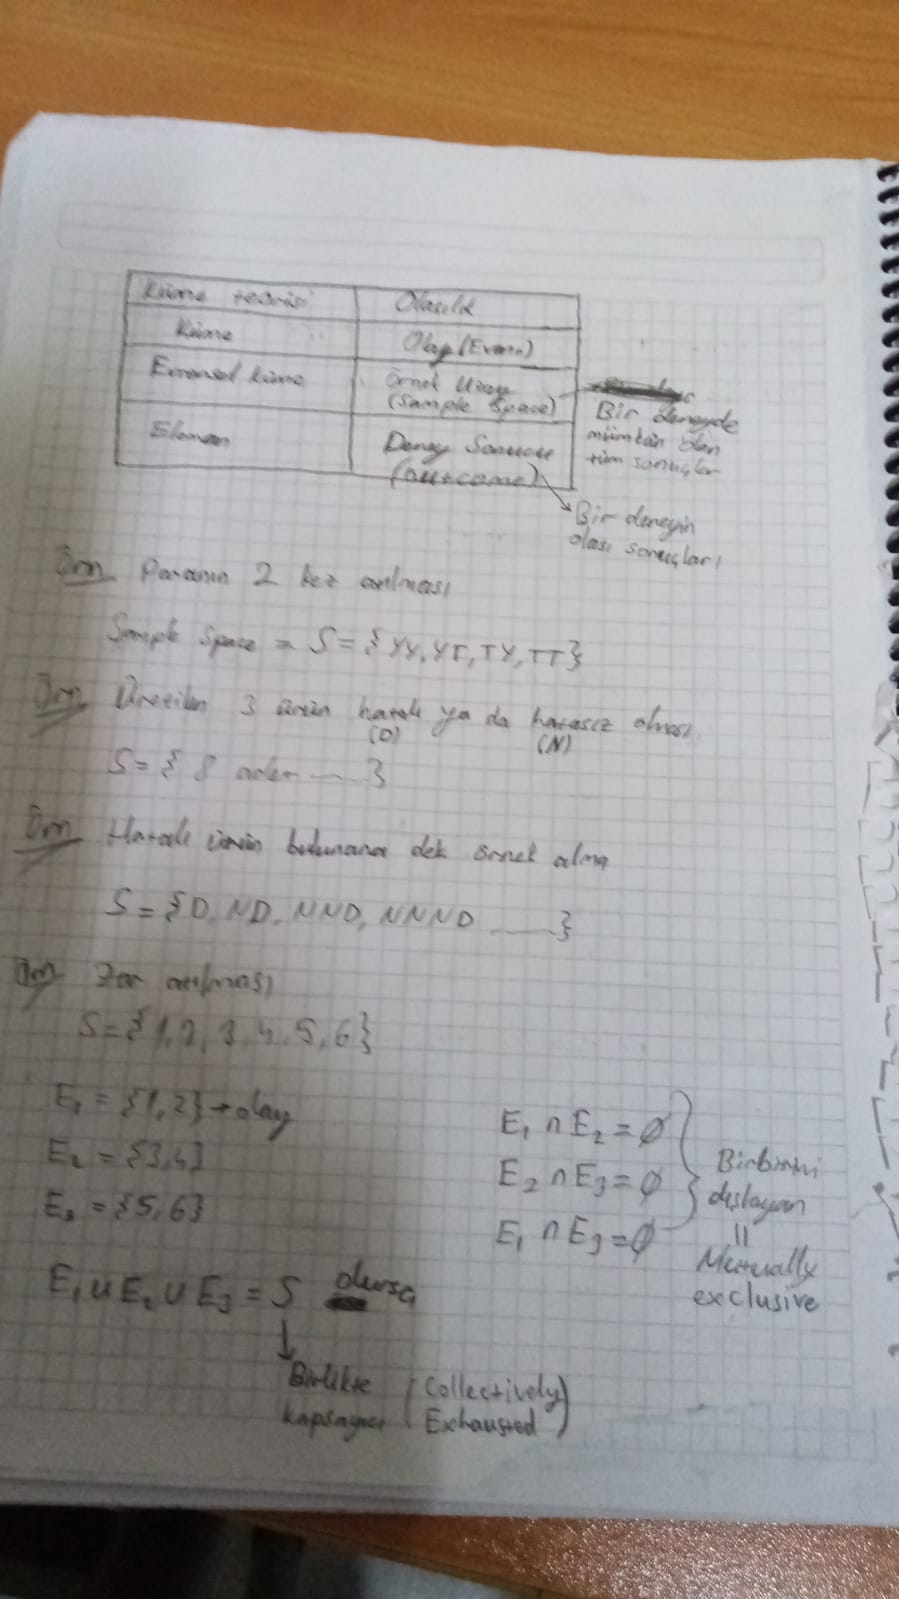 Küme teorisi Olasılık
Küme Olay (Event)
Evrensel küme Örnek Uzay
(Sample Space)
Bir deneyde
mümkün olan
tüm sonuçlar
Eleman Deney Sonucu
(outcome)
Bir deneyin
olası sonuçları
Örn Paranın 2 kez atılması
Sample Space = S = {YY, YT, TY, TT}
Örn Üretilen 3 ürün hatalı ya da hatasız olması
(D) (N)
S = { 8 adet ...... }
Örn Hatalı ürün bulunana dek örnek alma
S = {D, ND, NND, NNND ...... }
Örn Zar atılması
S = {1, 2, 3, 4, 5, 6}
E₁ = {1,2} → olay
E₂ = {3,4}
E₃ = {5,6}
E₁ ∩ E₂ = ∅
E₂ ∩ E₃ = ∅
E₁ ∩ E₃ = ∅
Birbirini
dışlayan
=
Mutually
exclusive
E₁ ∪ E₂ ∪ E₃ = S olursa
↓
Birlikte (Collectively
kapsayan Exhausted)